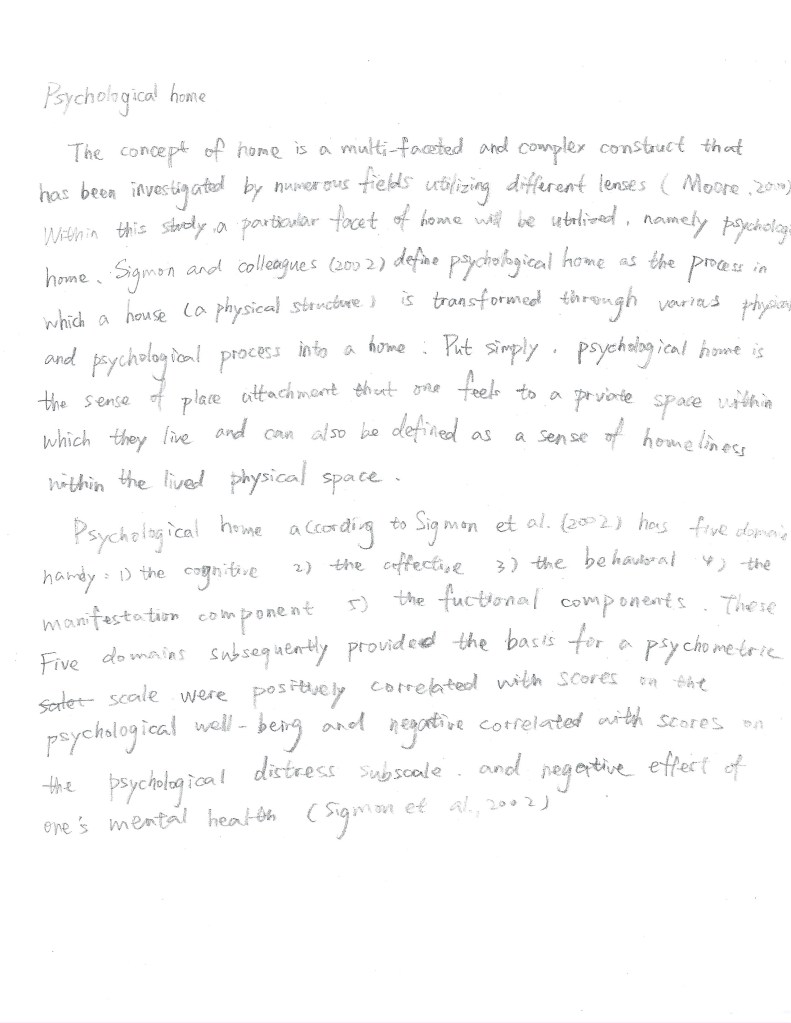 Psychological home
The concept of home is a multi-faceted and complex construct that
has been investigated by numerous fields utilizing different lenses (Moore, 2000)
Within this study, a particular facet of home will be utilized, namely psycholog
home. Sigmon and colleagues (2002) define psychological home as the process in
which a house (a physical structure) is transformed through various physical
and psychological process into a home. Put simply, psychological home is
the sense of place attachment that one feels to a private space within
which they live and can also be defined as a sense of homeliness
within the lived physical space.
Psychological home according to Sigmon et al. (2002) has five domain
namely: 1) the cognitive 2) the affective 3) the behavioral 4) the
manifestation component 5) the fuctional components. These
Five domains subsequently provided the basis for a psychometric
scale were positively correlated with scores on the
psychological well-being and negative correlated with scores on
the psychological distress subscale. and negative effect of
one's mental health (Sigmon et al., 2002)